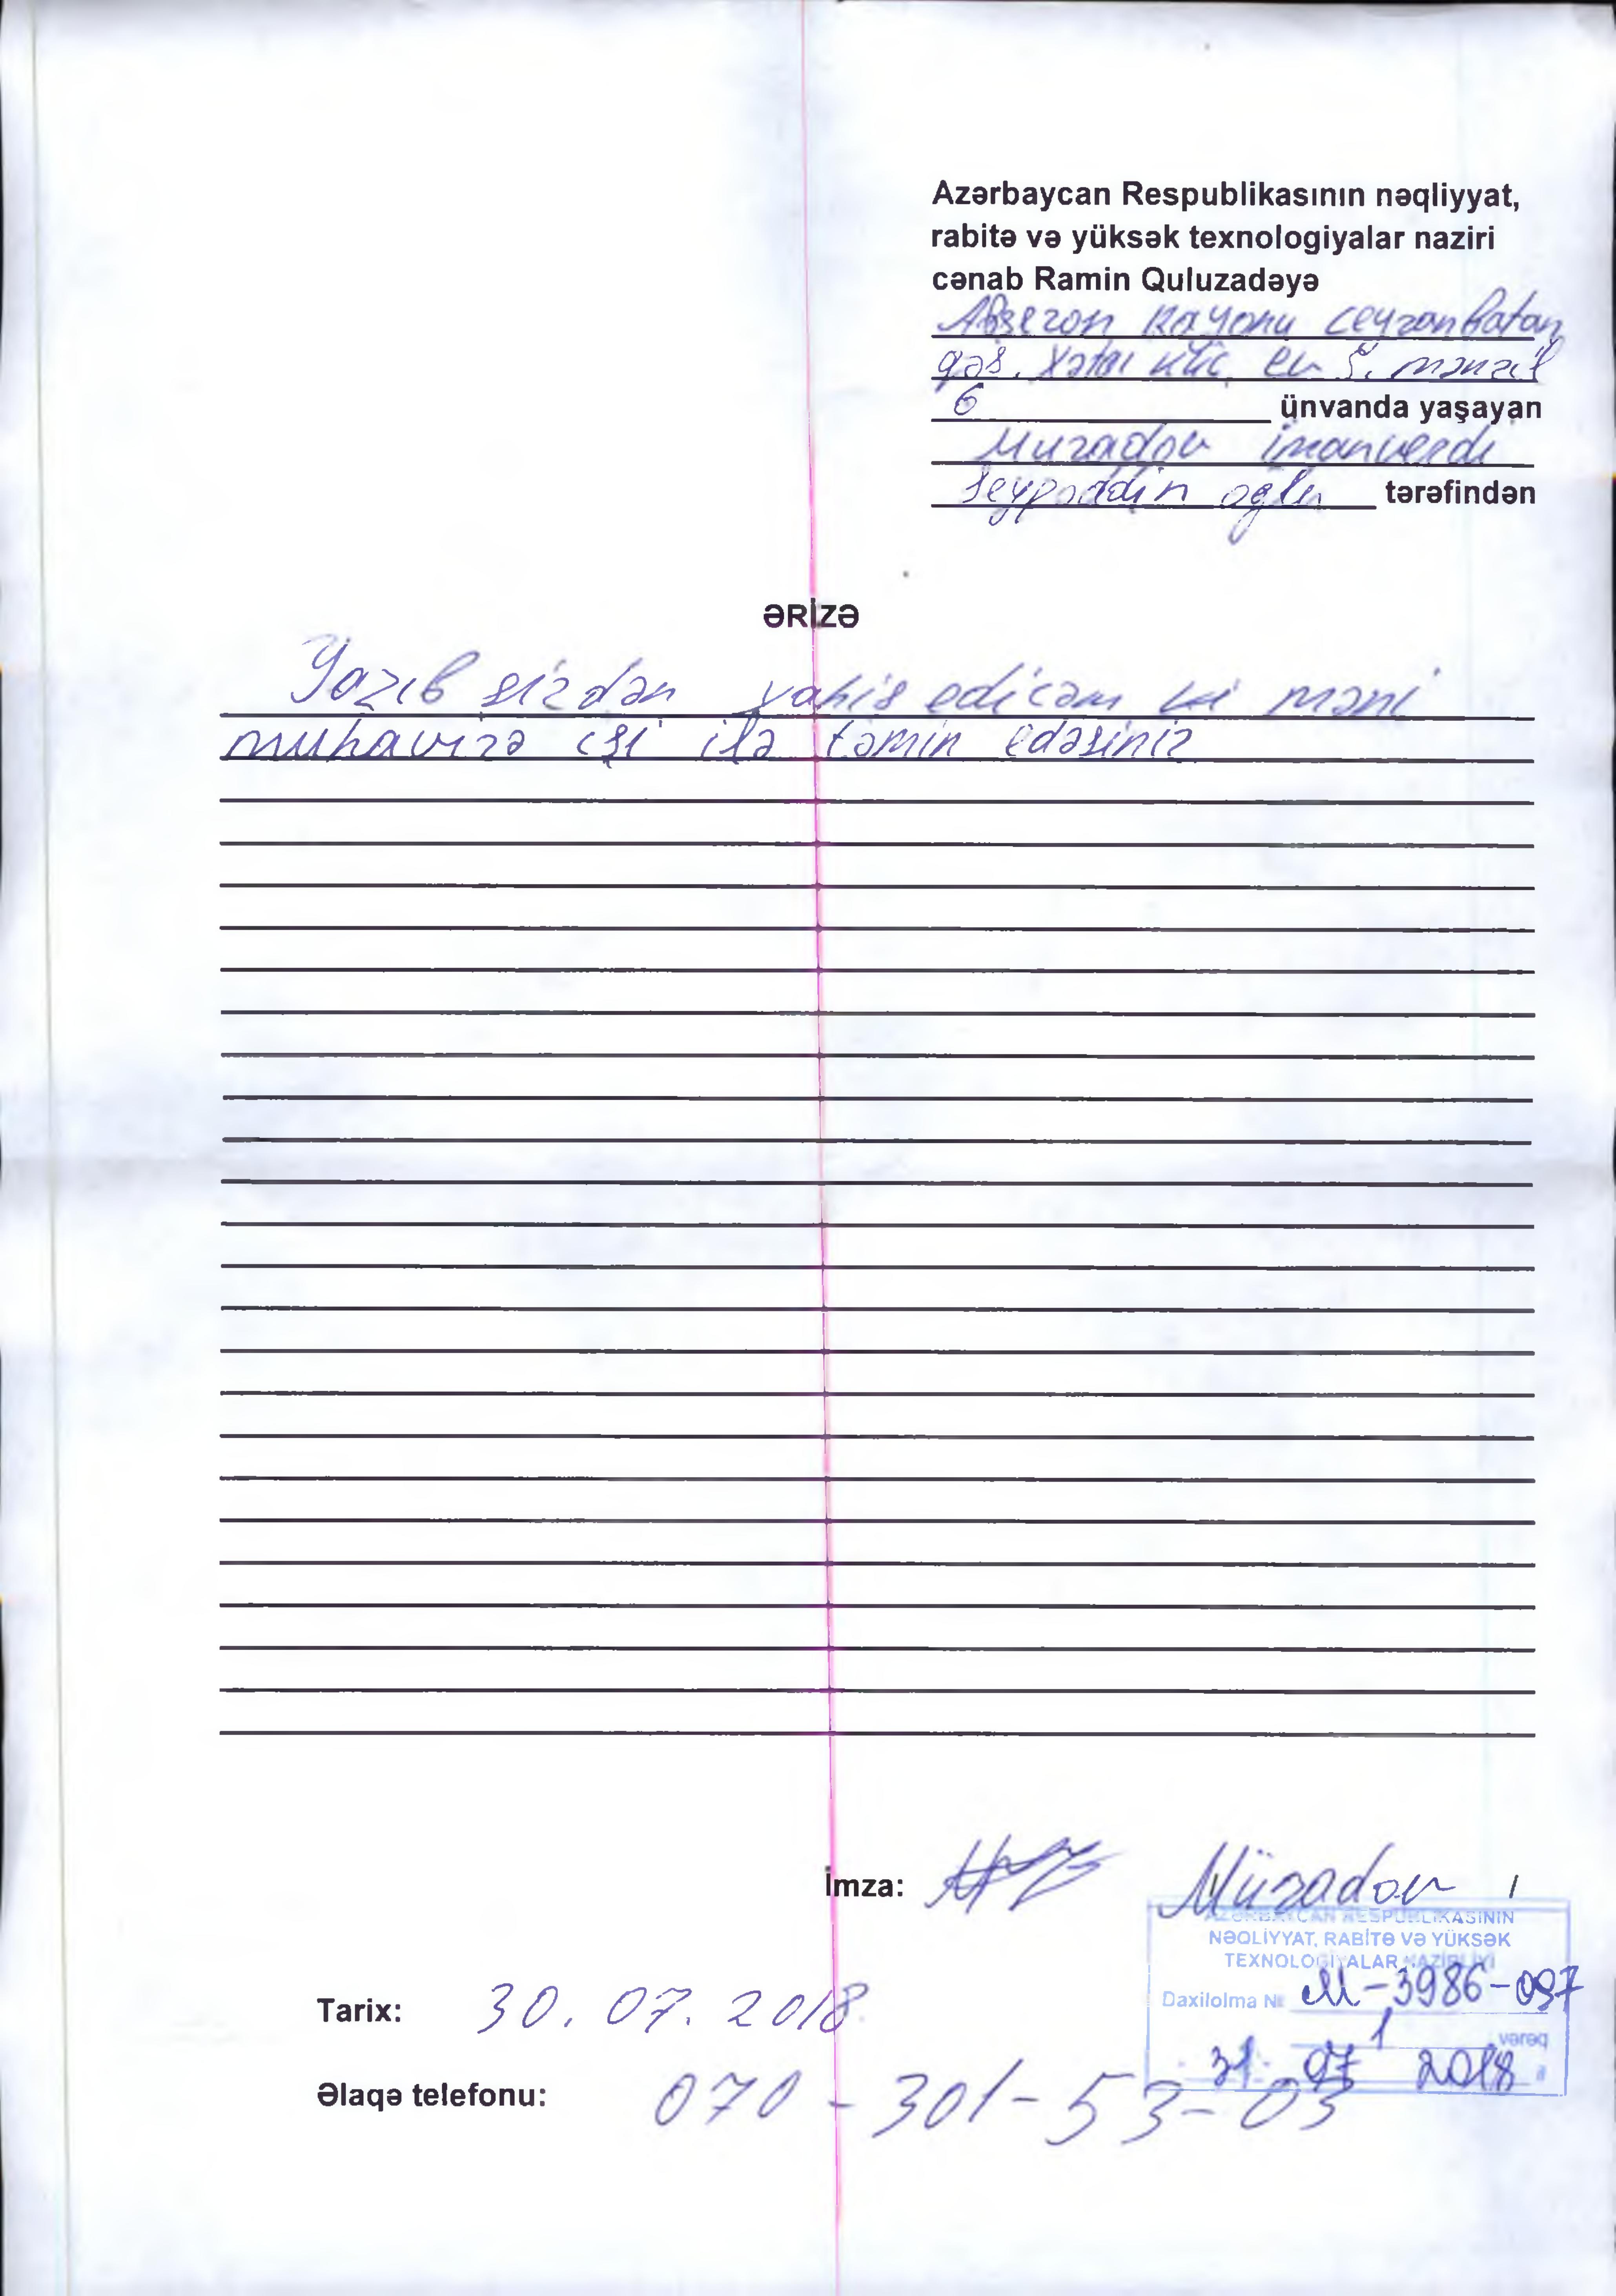 Azərbaycan Respublikasının nəqliyyat,
rabitə və yüksək texnologiyalar naziri
cənab Ramin Quluzadəyə
Abşeron Rayonu Ceyranbatan
qəs. Xətai küç, ev 5. mənzil
6 ünvanda yaşayan
Muradov imanverdi
Seyfəddin oglu tərəfindən
ƏRİZƏ
Yazıb sizdən xahis edirəm ki məni
muhavizə işi ilə təmin edəsiniz
İmza: Müradov i
AZƏRBAYCAN RESPUBLİKASININ
NƏQLİYYAT, RABİTƏ VƏ YÜKSƏK
TEXNOLOGİYALAR NAZİRLİYİ
Daxilolma № M-3986-097
1 vərəq
31 07 2018
Tarix: 30.07.2018
Əlaqə telefonu: 070-301-53-03